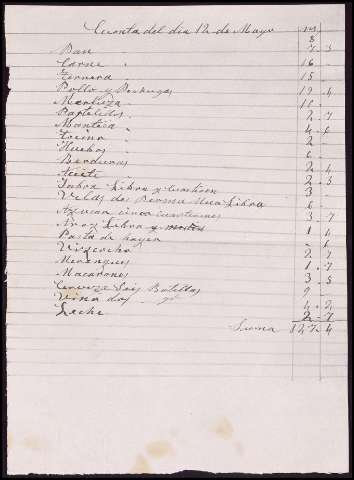 Cuenta del dia 12 de Mayo
Pan 7 - 3
Carne " 16 -
Ternera 15 -
Pollo y Pechugas 19 - 4
Merluza
Pastelitos 2 - 7
Manteca " 4 - 6
Tocino " 2 -
Huebos 6 -
Berduras 2 - 4
Aceite " 2 - 5
Jabon Libra y cuarteron 3
Velas de Una Libra 6 -
Azucar cinco cuarterones 3 - 7
Libra y 1 - 4
Pasta de - 6
Vizcocho 2 - 7
Merengues 1 - 7
Macarrones 3 - 5
Cerveza Seis Botellas 9 -
Vino dos 4 - 2
Leche 2 - 7
Suma 127 - 4